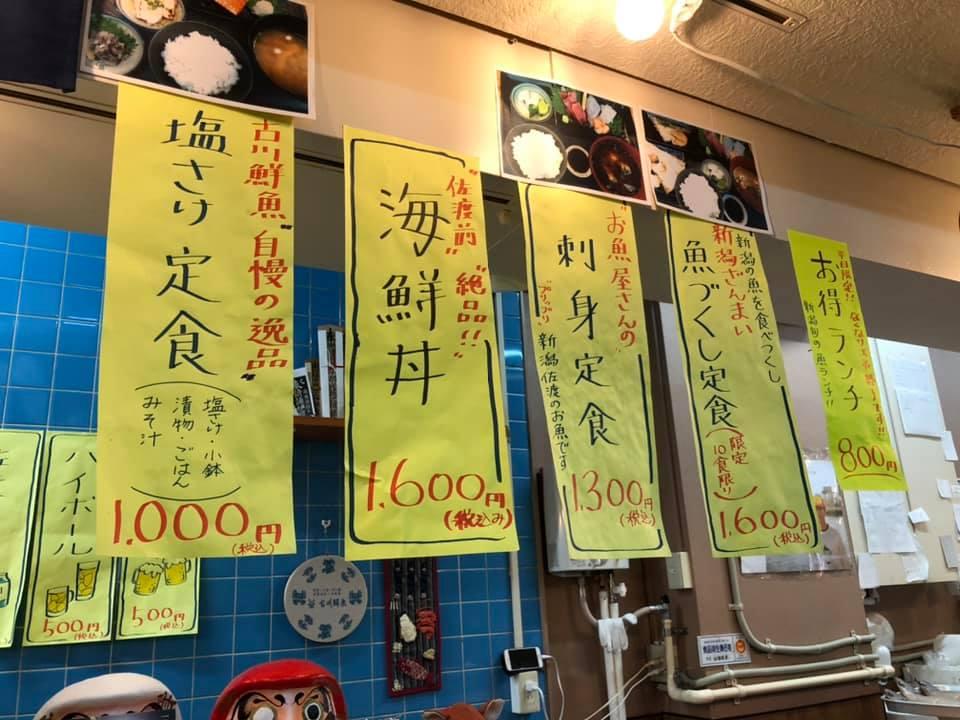 古川鮮魚"自慢の逸品"
塩さけ定食
(塩さけ・小鉢
漬物・ごはん
みそ汁)
1.000円
(税込)
"佐渡前""絶品!!"
海鮮丼
1.600円
(税込み)
"お魚屋さんの
刺身定食
"プリップリ"新潟佐渡のお魚です
1.300円
(税込)
新潟の魚を食べつくし
新潟ざんまい
魚づくし定食
(限定
10食限り)
1.600円
(税込)
平日限定!!
お得ランチ
800円
ハイボール
500円
(税込)
500円
(税込)
古川鮮魚